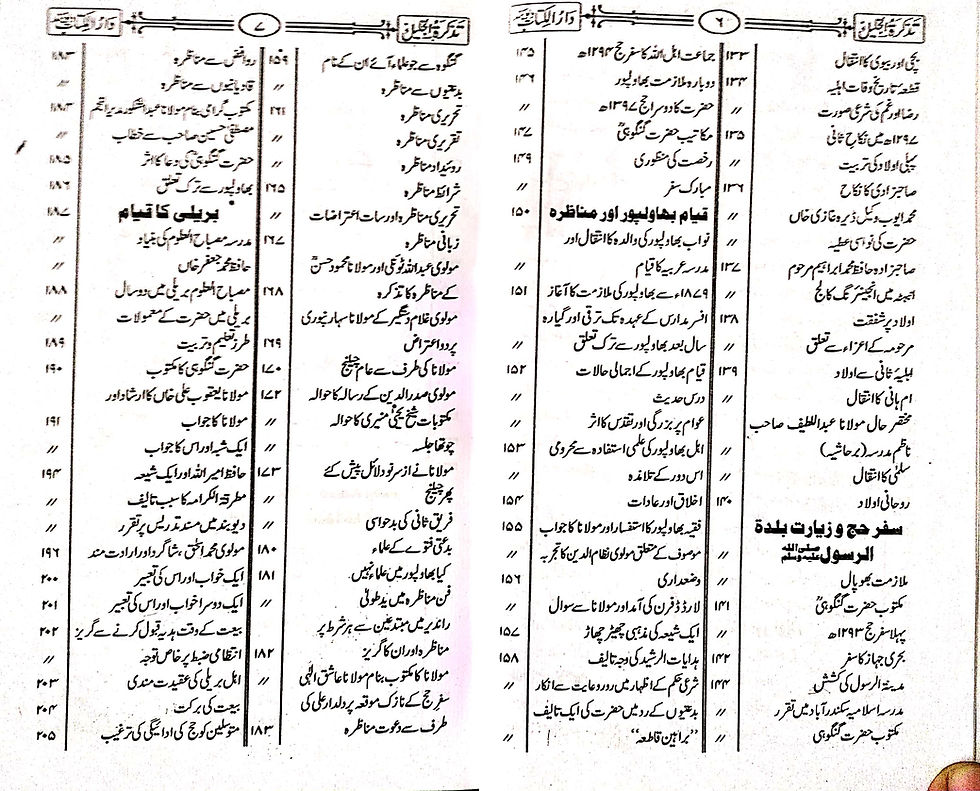 تذکرۃ الخلیل
۶
دار الکتاب دیوبند
بچی اور بیوی کا انتقال ۱۳۳
قطعہ تاریخ وفات اہلیہ ۱۳۴
رضا اور غم کی شرعی صورت 〃
۱۲۹۷ھ میں نکاح ثانی ۱۳۵
پہلی اولاد کی تربیت 〃
صاحبزادی کا نکاح ۱۳۶
محمد ایوب وکیل ڈیرہ غازی خاں 〃
حضرت کی نواسی عطیہ 〃
صاحبزادہ حافظ محمد ابراہیم مرحوم ۱۳۷
انبہٹہ میں انجینئرنگ کالج 〃
اولاد پر شفقت ۱۳۸
مرحومہ کے اعزاء سے تعلق 〃
اہلیۂ ثانی سے اولاد ۱۳۹
ام ہانی کا انتقال 〃
مختصر حال مولانا عبداللطیف صاحب
ناظم مدرسہ (بر حاشیہ) 〃
سلمٰی کا انتقال 〃
روحانی اولاد ۱۴۰
سفر حج و زیارت بلدۃ
الرسول صلی اللہ علیہ وسلم
ملازمت بھوپال 〃
مکتوب حضرت گنگوہیؒ ۱۴۱
پہلا سفر حج ۱۲۹۳ھ 〃
بحری جہاز کا سفر ۱۴۲
مدینۃ الرسول کی کشش ۱۴۴
مدرسہ اسلامیہ سکندرآباد میں تقرر 〃
مکتوب حضرت گنگوہی 〃
جماعت اہل اللہ کا سفر حج ۱۲۹۴ھ ۱۴۵
دوبارہ ملازمت بھاولپور ۱۴۶
حضرت کا دوسرا حج ۱۲۹۷ھ 〃
مکاتیب حضرت گنگوہیؒ ۱۴۷
رخصت کی منظوری ۱۴۹
مبارک سفر 〃
قیام بھاولپور اور مناظرہ ۱۵۰
نواب بھاولپور کی والدہ کا انتقال اور
مدرسہ عربیہ کا قیام 〃
۱۸۷۹ء سے بھاولپور کی ملازمت کا آغاز ۱۵۱
افسر مدارس کے عہدہ تک ترقی اور گیارہ
سال بعد بھاولپور سے ترک تعلق 〃
قیام بھاولپور کے اجمالی حالات ۱۵۲
درس حدیث 〃
عوام پر بزرگی اور تقدس کا اثر 〃
اہل بھاولپور کی علمی استفادہ سے محرومی ۱۵۳
اس دور کے تلامذہ 〃
اخلاق اور عادات ۱۵۴
فقیہ بھاولپور کا استفسار اور مولانا کا جواب ۱۵۵
موصوف کے متعلق مولوی نظام الدین کا تجربہ 〃
وضعداری ۱۵۶
لارڈ ڈفرن کی آمد اور مولانا سے سوال 〃
ایک شیعہ کی مذہبی چھیڑ چھاڑ ۱۵۷
ہدایات الرشید کی وجہ تالیف ۱۵۸
شرعی حکم کے اظہار میں رو رعایت سے انکار 〃
بدعتیوں کے رد میں حضرت کی ایک تالیف
’’براہین قاطعہ‘‘ 〃
تذکرۃ الخلیل
۷
دار الکتاب دیوبند
گنگوہ سے جو علماء آئے ان کے نام ۱۵۹
بدعتیوں سے مناظرہ 〃
تحریری مناظرہ ۱۶۱
تقریری مناظرہ 〃
روئیداد مناظرہ 〃
شرائط مناظرہ ۱۶۵
تحریری مناظرہ اور سات اعتراضات 〃
زبانی مناظرہ ۱۶۷
مولوی عبداللہ ٹونکی اور مولانا محمود حسنؒ
کے مناظرہ کا تذکرہ ۱۶۸
مولوی غلام دستگیر کے مولانا سہارنپوری
پر دو اعتراض ۱۶۹
مولانا کی طرف سے عام چیلنج ۱۷۰
مولوی صدرالدین کے رسالہ کا حوالہ ۱۷۲
مکتوبات شیخ یحییٰ منیری کا حوالہ 〃
چوتھا جلسہ 〃
مولانا نے از سر نو دلائل پیش کئے ۱۷۳
پھر چیلنج 〃
فریق ثانی کی بدحواسی 〃
بدعتی فتوے کے علماء ۱۸۰
کیا بھاولپور میں علماء نہیں ۱۸۱
فن مناظرہ میں یدطولیٰ 〃
راندیر میں مبتدعین سے ہر شرط پر
مناظرہ اور ان کا گریز ۱۸۲
مولانا کا مکتوب بنام مولانا عاشق الٰہی 〃
سفر حج کے نازک موقعہ پر دلدار علی کی
طرف سے دعوت مناظرہ ۱۸۳
روافض سے مناظرہ ۱۸۳
قادیانیوں سے مناظرہ 〃
مکتوب گرامی بنام مولانا عبدالشکور مدیر النجم ۱۸۴
مصطفیٰ حسین صاحب سے خطاب 〃
حضرت گنگوہیؒ کی دعا کا اثر ۱۸۵
بھاولپور سے ترک تعلق ۱۸۶
بریلی کا قیام ۱۸۷
مدرسہ مصباح العلوم کی بنیاد 〃
حافظ محمد جعفر خاں 〃
مصباح العلوم بریلی میں دو سال ۱۸۸
بریلی میں حضرت کے معمولات 〃
طرز تعلیم و تربیت ۱۸۹
حضرت گنگوہی کا مکتوب ۱۹۰
مولانا یعقوب علی خاں کا ارشاد اور
مولانا کا جواب ۱۹۱
ایک شبہ اور اس کا جواب 〃
حافظ امیر اللہ اور ایک شیعہ ۱۹۴
مطرقۃ الکرامہ کا سبب تالیف 〃
دیوبند میں مسند تدریس پر تقرر 〃
مولوی محمد اسحٰق، شاگرد اور ارادت مند ۱۹۶
ایک خواب اور اس کی تعبیر ۲۰۰
ایک دوسرا خواب اور اس کی تعبیر ۲۰۱
بیعت کے وقت ہدیہ قبول کرنے سے گریز ۲۰۲
انتظامی ضبط پر خاص توجہ 〃
اہل بریلی کی عقیدت مندی ۲۰۳
بیعت کی برکت ۲۰۴
متوسلین کو حج کی ادائیگی کی ترغیب ۲۰۵